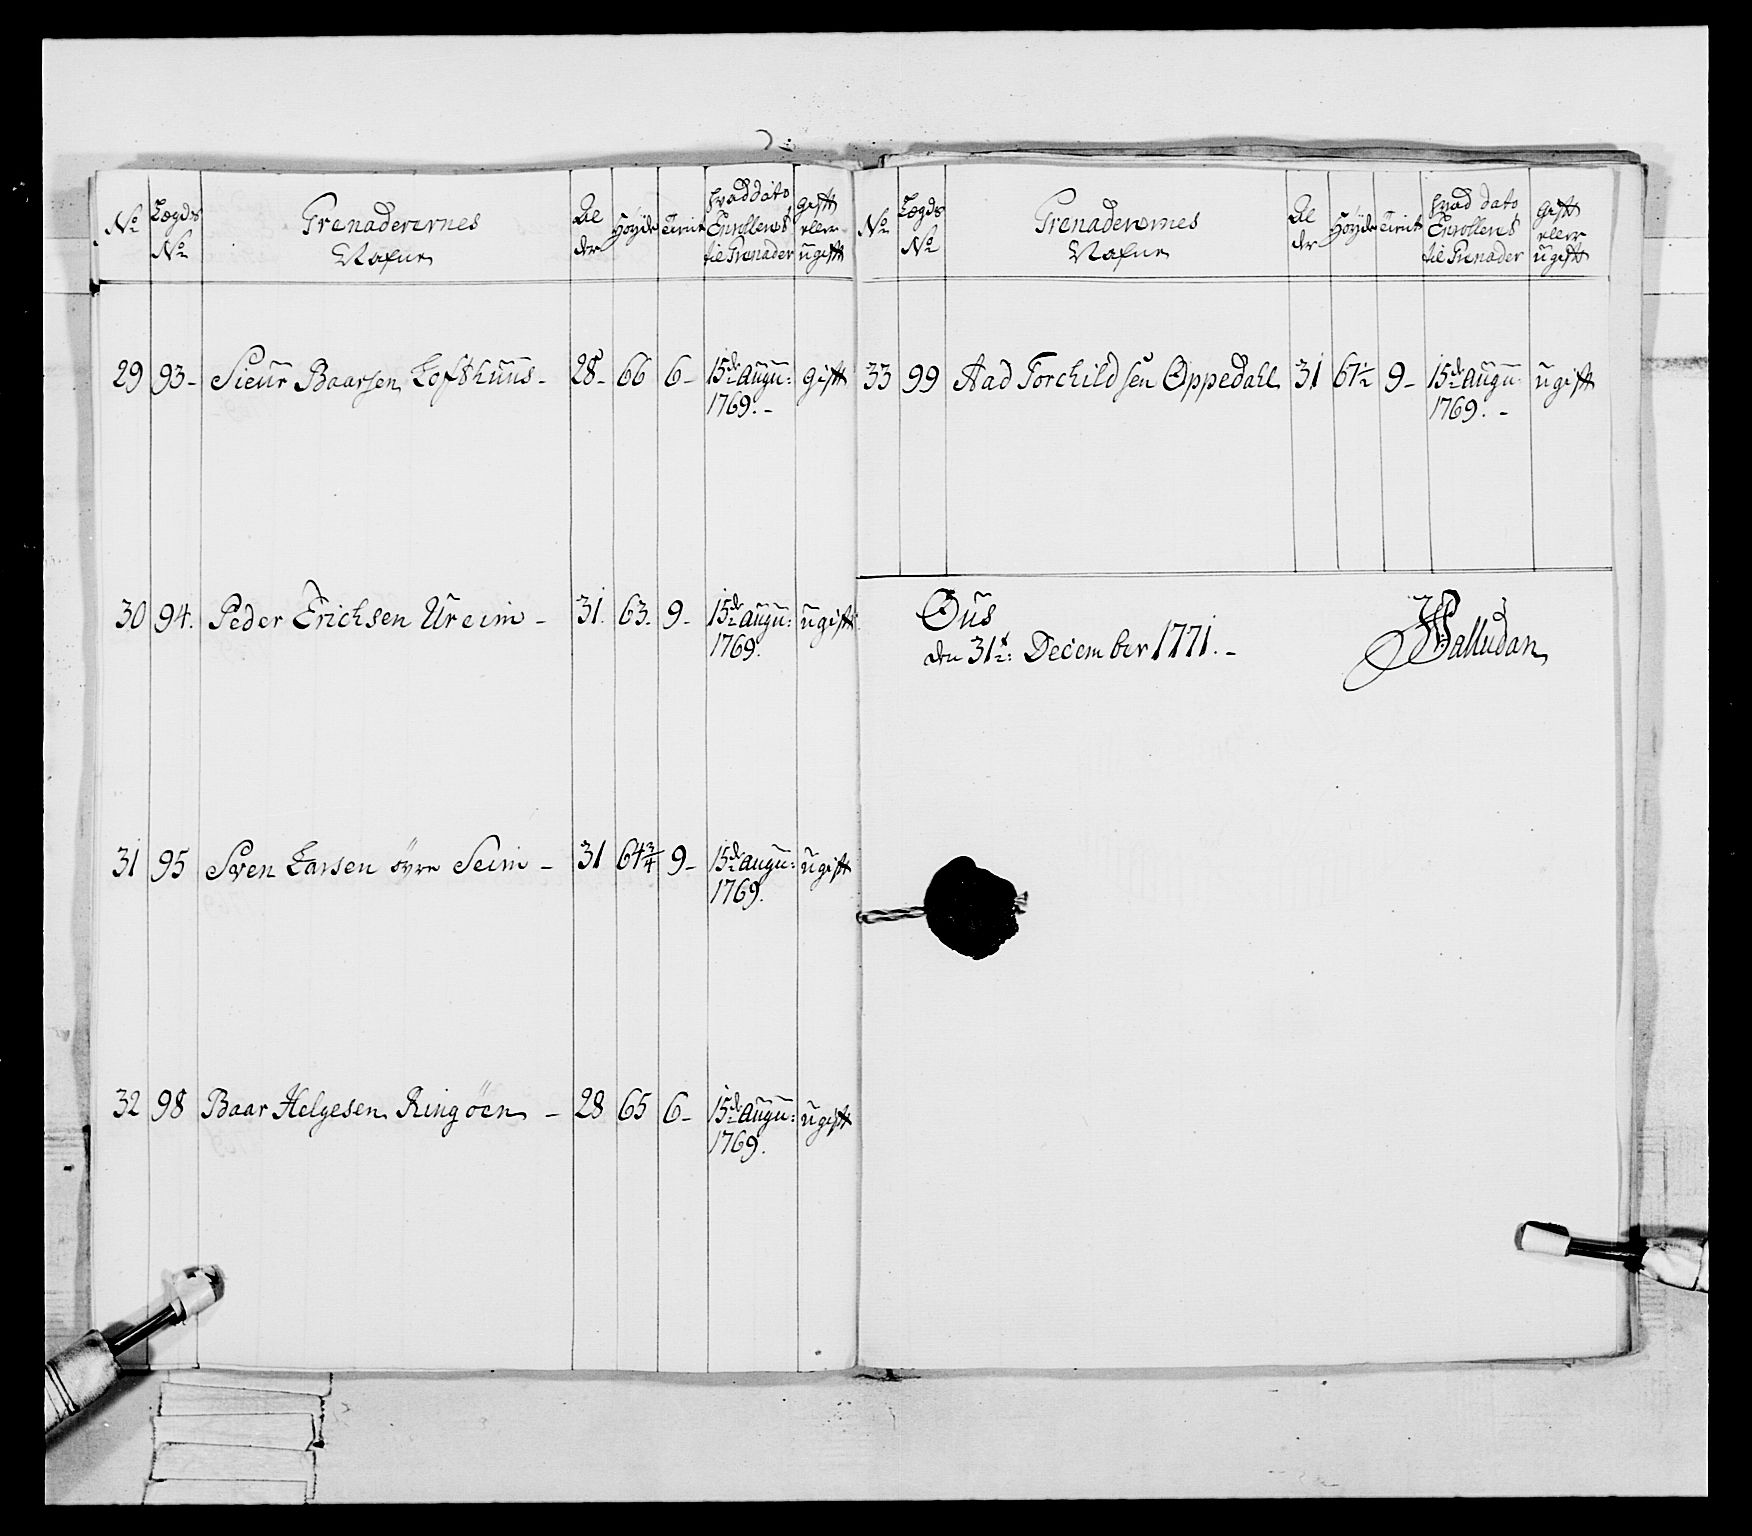 No
Lægds
No
Grenaderernes
Nafne
Al
der
Höyde
Tient
hvad dato
Enrolleret
til Grenader
Gift
eller
ugift
29 93 - Sieur Baarsen Lofthuus - 28 - 66 6 - 15de Augu: gift
1769. -
30 94. Peder Erichsen Ureim - 31. 63. 9 - 15de Augu: ugift
1769.
31 95 Sven Larsen övre Seim - 31 64 3/4 9 - 15de Augu: ugift
1769.
32 98 Baar Helgesen Ringöen - 28 65 6 - 15de Augu: ugift
1769.
No
Lægds
No
Grenaderernes
Nafne
Al
der
Höyde
Tient
hvad dato
Enrolleret
til Grenader
Gift
eller
ugift
33 99 Aad Torchildsen Oppedahl 31 67 1/2 9 - 15de Augu: ugift
1769. -
Øus
den 31t: December 1771. -
Palludan